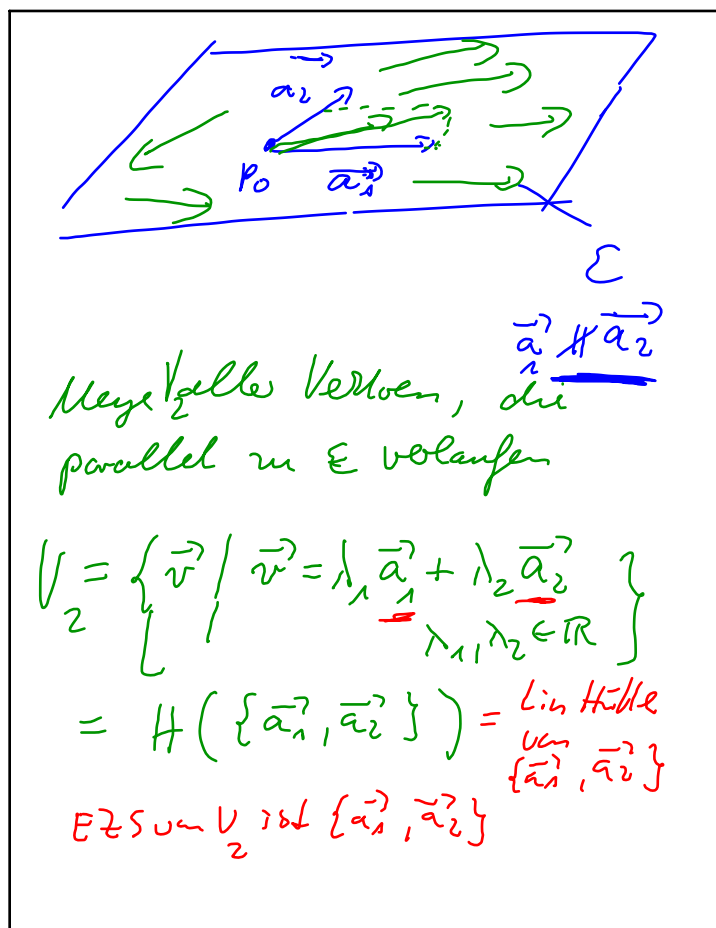 a⃗₂
P₀ a⃗₁
ε
a⃗₁ ∦ a⃗₂
Menge V₂ aller Vektoren, die
parallel zu ε verlaufen
V₂ = { v⃗ | v⃗ = λ₁ a⃗₁ + λ₂ a⃗₂
λ₁, λ₂ ∈ ℝ }
= H ( { a⃗₁, a⃗₂ } ) = Lin Hülle
von
{ a⃗₁, a⃗₂ }
EZS von V₂ ist { a⃗₁, a⃗₂ }